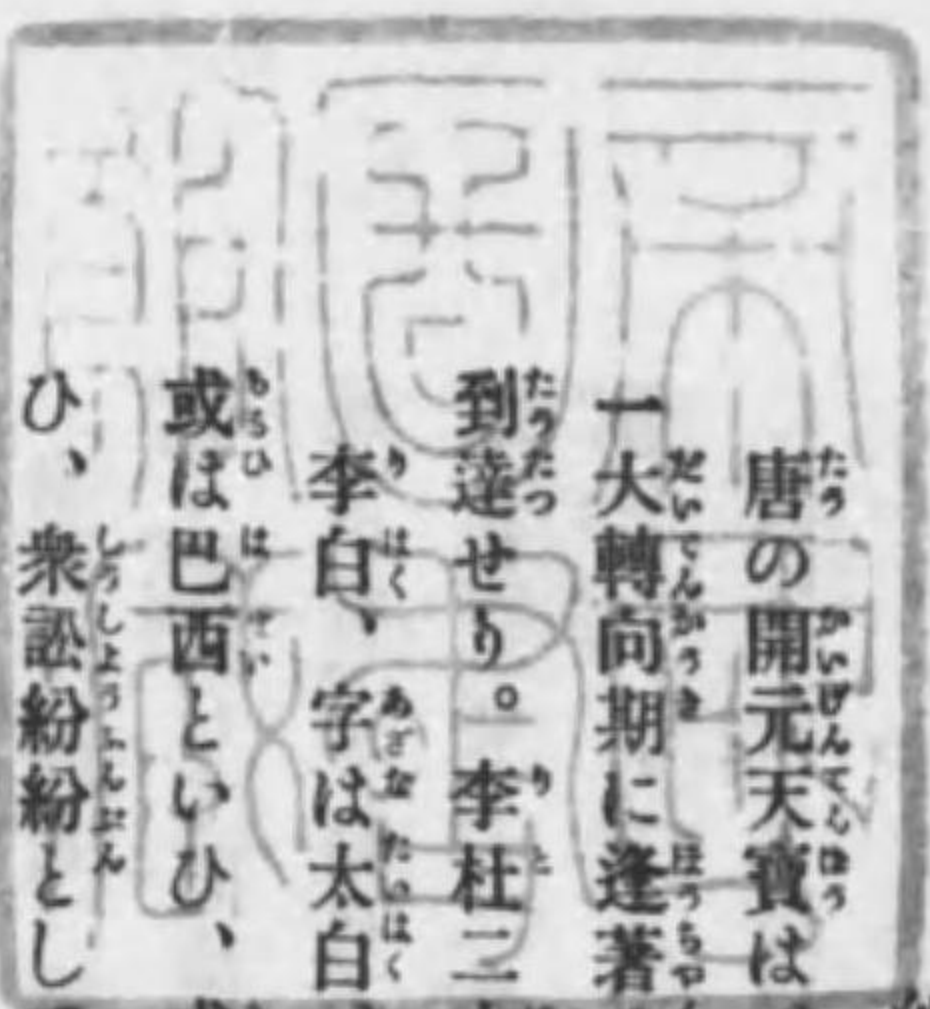 唐の開元天寶は
一大轉向期に逢著
到達せり。李杜二
李白、字は太白
或は巴西といひ、
ひ、衆訟紛紛とし